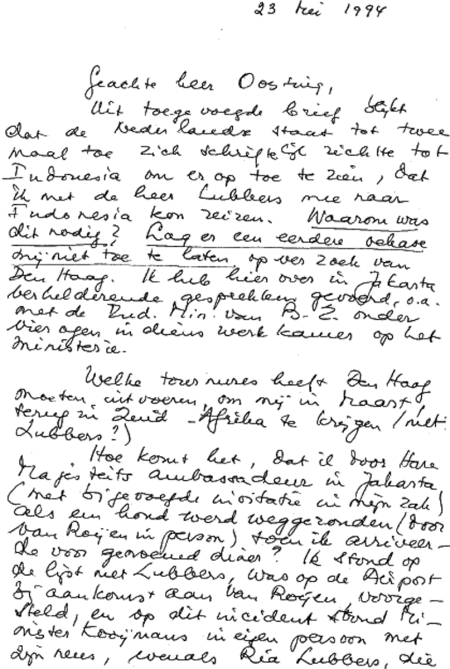 23 Mei 1994
Geachte heer Oosting,
Uit toegevoegde brief blijkt
dat de Nederlandse staat tot twee
maal toe zich schriftelijk richtte tot
Indonesia om er op toe te zien, dat
ik met de heer Lubbers mee naar
Indonesia kon reizen. Waarom was
dit nodig? Lag er een eerdere
mij niet toe te laten, op verzoek van
Den Haag. Ik heb hier over in Jakarta
verhelderende gesprekken gevoerd, o.a.
met de Ind. Min. van B.Z. onder
vier ogen in diens werkkamer op het
ministerie.
Welke tournures heeft Den Haag
moeten uitvoeren, om mij in Maart,
terug in Zuid-Afrika te krijgen (met
Lubbers?)
Hoe komt het, dat ik door Hare
Majesteits ambassadeur in Jakarta
(met bijgevoegde invitatie in mijn zak)
als een hond werd weggezonden (door
Van Roijen in person) toen ik arriveer-
de voor genoemd diner? Ik stond op
de lijst met Lubbers, was op de Airport
bij aankomst aan Van Roijen, voorge-
steld, en op dit incident stond Mi-
nister Kooijmans in eigen persoon met
zijn neus, evenals Ria Lubbers, die